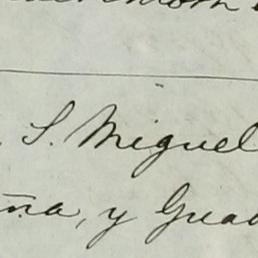 S. Miguel
ña, y Gua